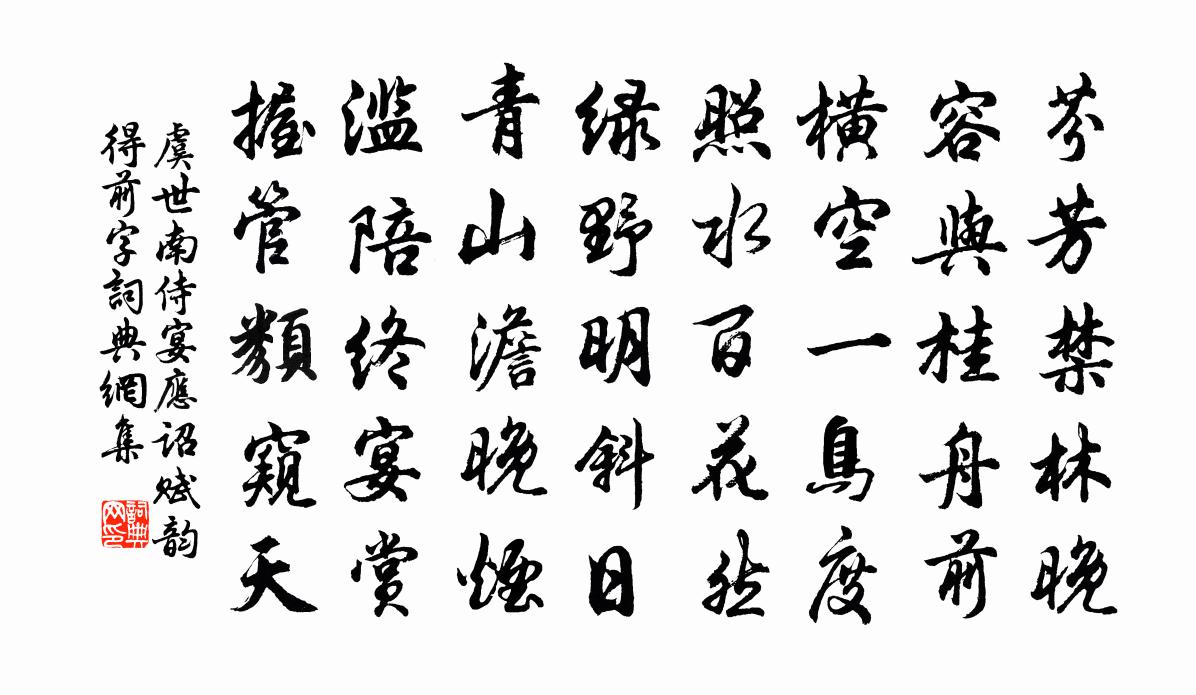 芬芳禁林晚
容與桂舟前
橫空一鳥度
照水百花然
绿野明斜日
青山澹晚煙
濫陪終宴賞
握管類窺天
虞世南侍宴應詔賦韵
得前字詞典網集
詞典
网印